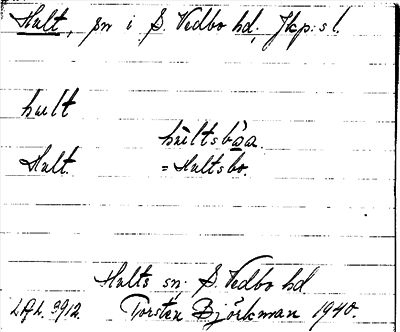 Hult, sn i S. Vedbo hd, Jkp:s l.
hult
hultsbòa.
Hult. = Hultsbo.
Hults sn. S. Vedbo hd
L.A.L. 3912. Torsten Björkman 1940.